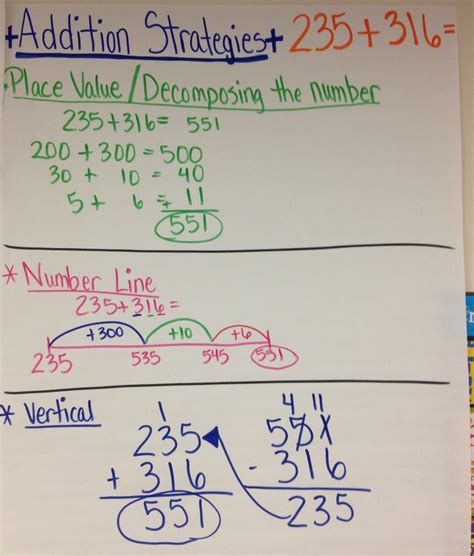 +Addition Strategies+ 235+316=
Place Value/Decomposing the number
235+316= 551
200 + 300 = 500
30 + 10 = 40
5 + 6 = + 11
551
* Number Line
235+316=
+300 +10 +6
235 535 545 551
* Vertical
1 4 11
235 551
+ 316 - 316
551 235